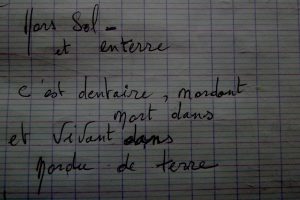 Hors Sol -
et enterre
c'est dentaire, mordant
Mort dans
et Vivant dans
Mordu de terre